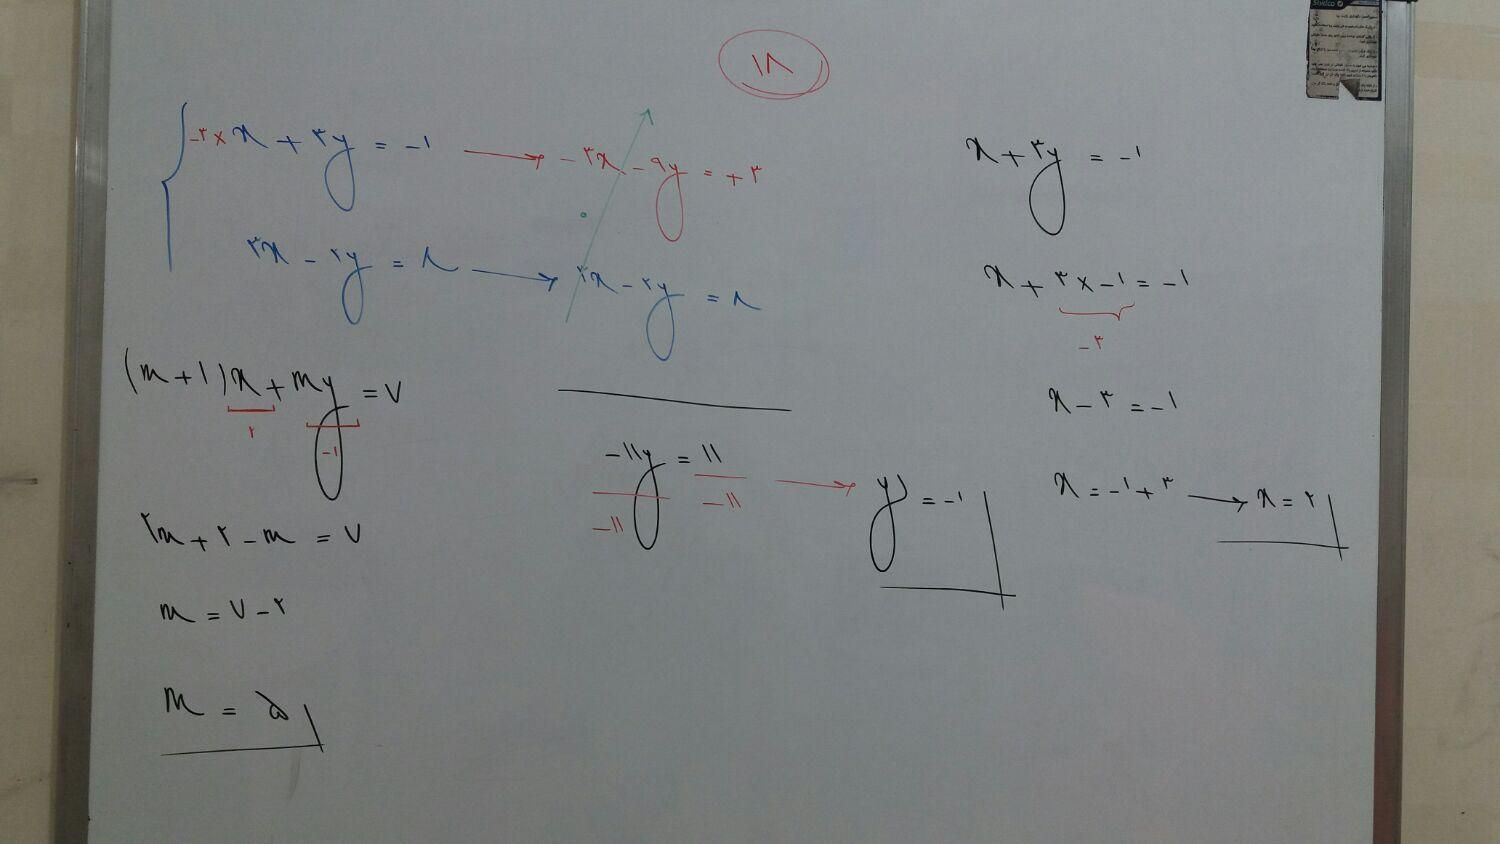 ۱۸
-۳× x + ۳y = -۱ → -۳x - ۹y = +۳
۳x - ۲y = ۸ → ۳x - ۲y = ۸
-۱۱y = ۱۱
-۱۱ -۱۱
→ y = -۱
x + ۳y = -۱
x + ۳ × -۱ = -۱
-۳
x - ۳ = -۱
x = -۱ + ۳ → x = ۲
(m + ۱)x + my = ۷
۲ -۱
۲m + ۲ - m = ۷
m = ۷ - ۲
m = ۵